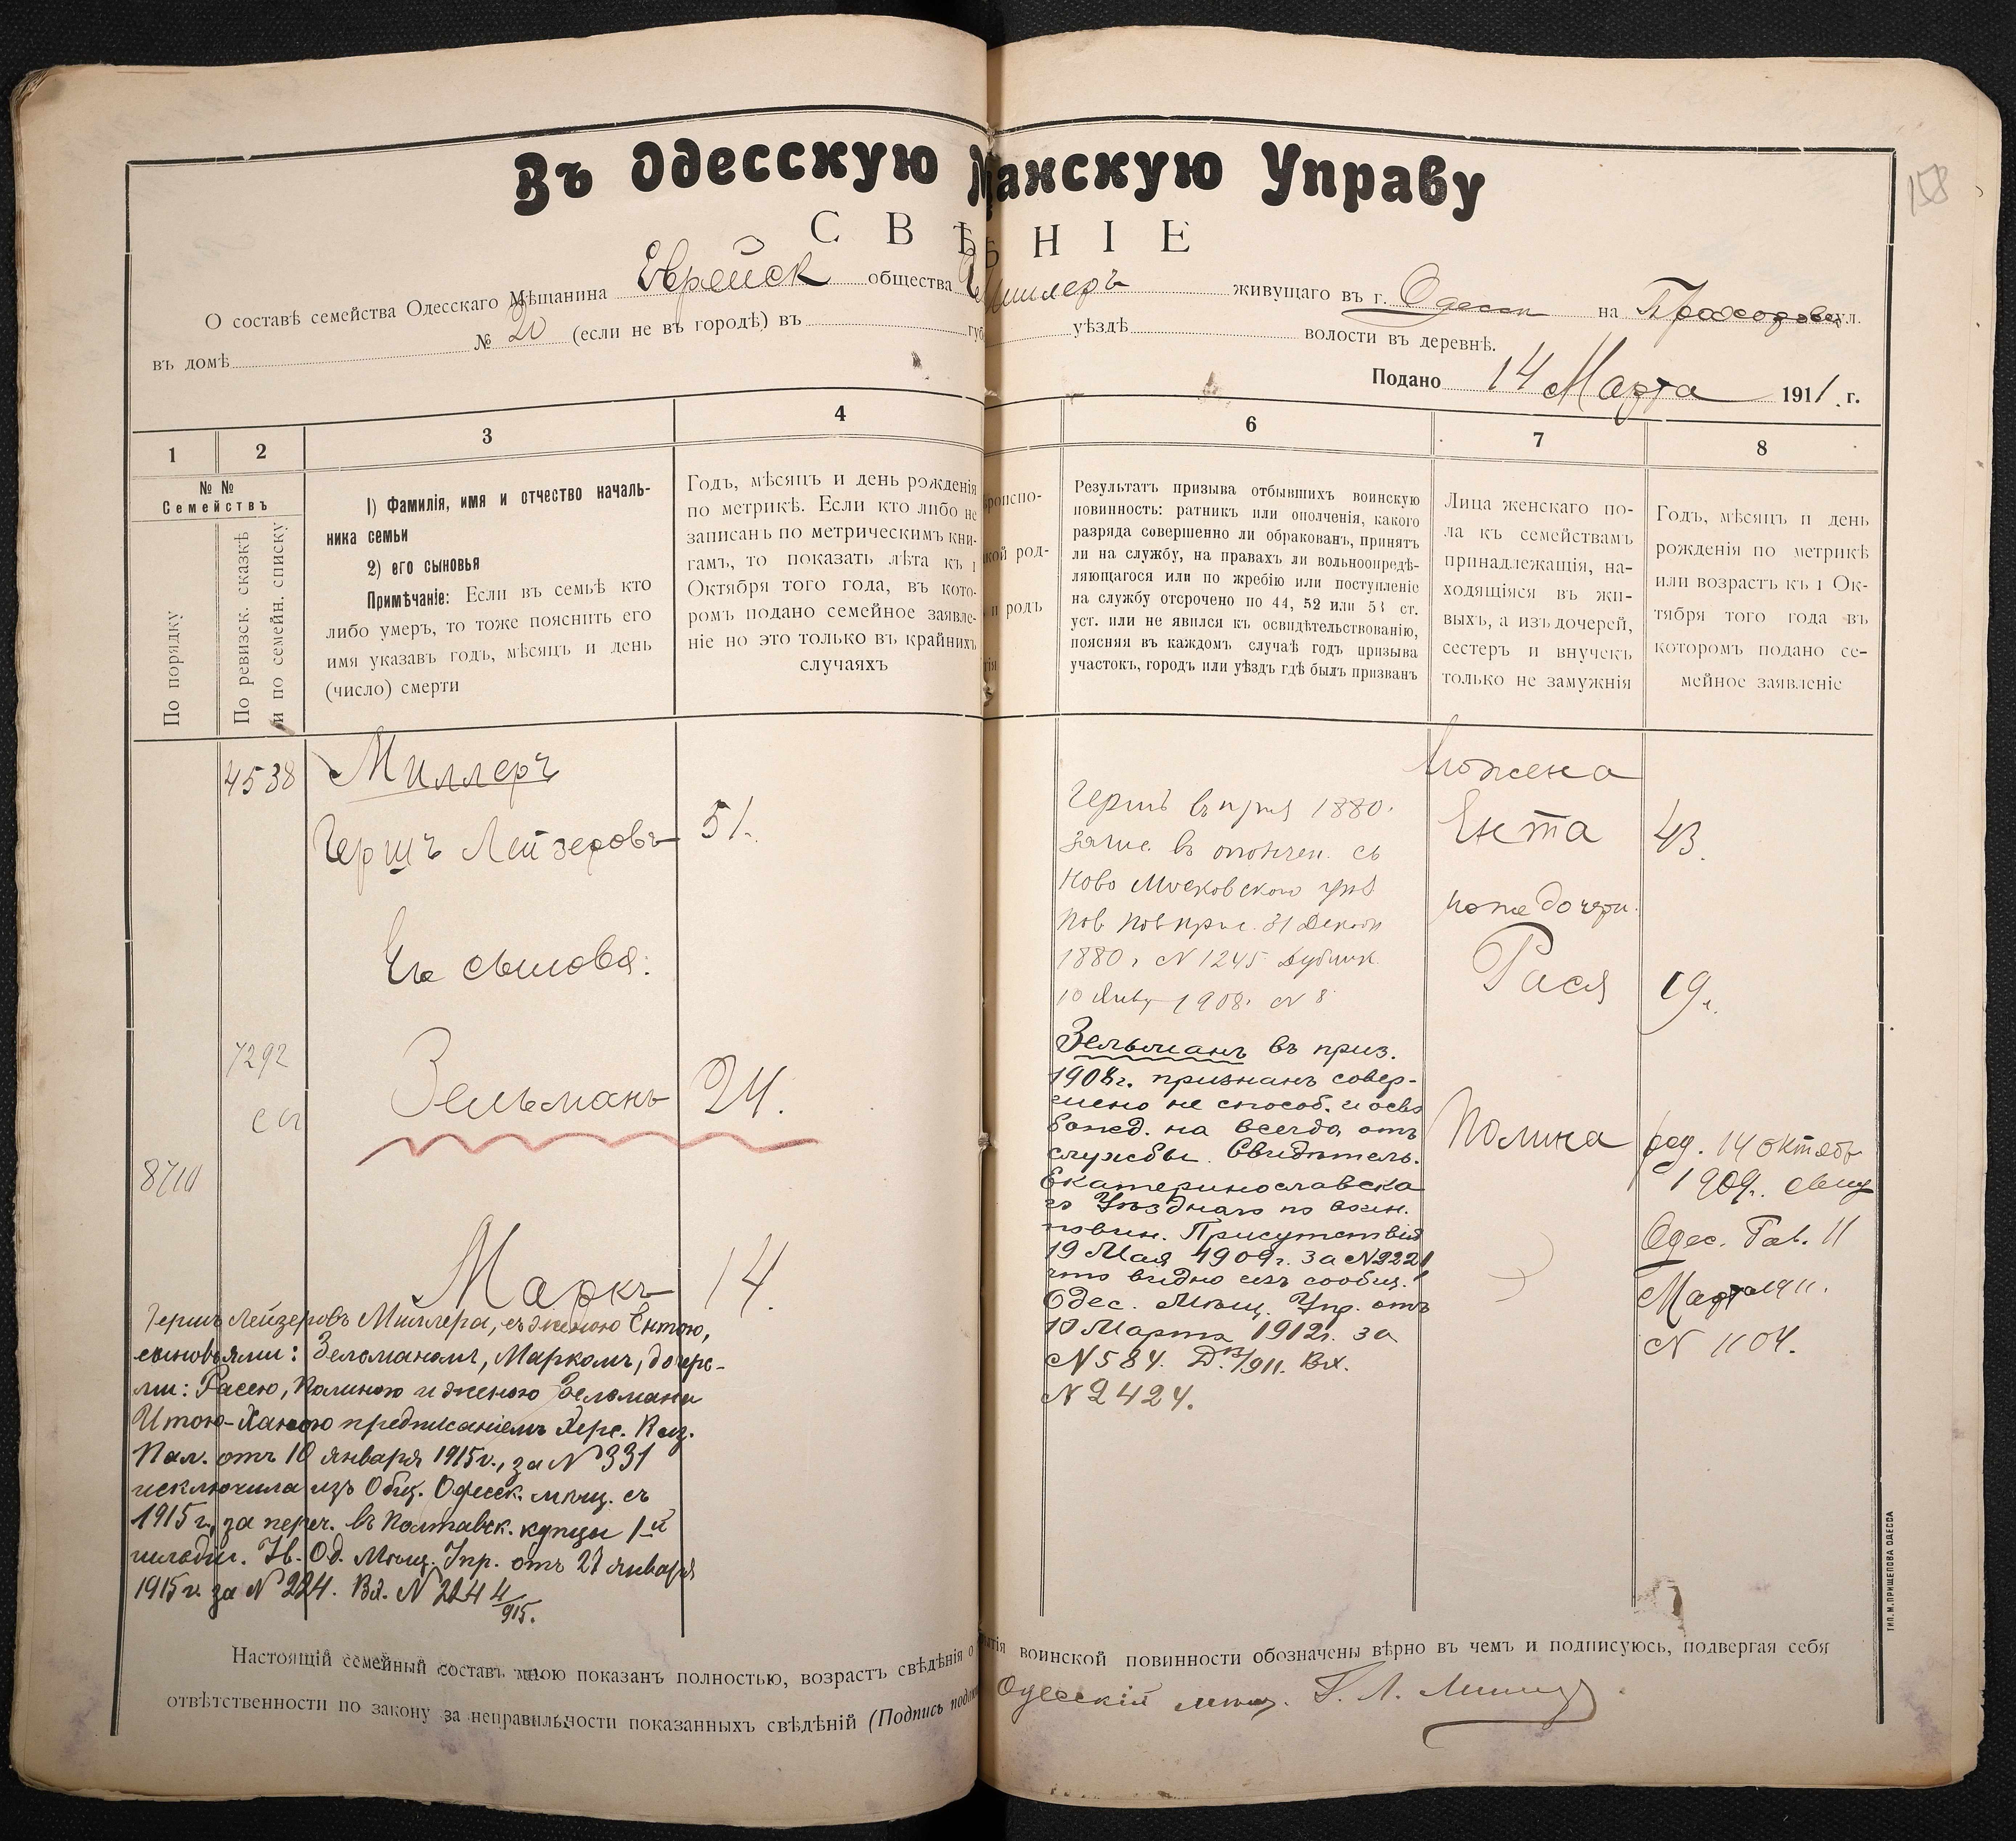 158
Въ Одесскую Мѣщанскую Управу
СВѢДѢНІЕ
О составѣ семейства Одесскаго Мѣщанина Еврейск общества Миллеръ живущаго въ г. Одессѣ на Проходовск ул.
въ домѣ № 20 (если не въ городѣ) въ губ уѣздѣ волости въ деревнѣ.
Подано 14 Марта 1911 г.
1
2
3
4
6
7
8
№№
Семействъ
По порядку
По ревизск. сказкѣ
и по семейн. списку
1) Фамилія, имя и отчество началь-
ника семьи
2) его сыновья
Примѣчаніе: Если въ семьѣ кто
либо умеръ, то тоже пояснить его
имя указавъ годъ, мѣсяцъ и день
(число) смерти
Годъ, мѣсяцъ и день рожденія
по метрикѣ. Если кто либо не
записанъ по метрическимъ кни-
гамъ, то показать лѣта къ 1
Октября того года, въ кото-
ромъ подано семейное заявле-
ніе но это только въ крайнихъ
случаяхъ
роиспо-
кой род-
и родъ
тія
Результатъ призыва отбывшихъ воинскую
повинность: ратникъ или ополченія, какого
разряда совершенно ли обракованъ, принятъ
ли на службу, на правахъ ли вольноопредѣ-
ляющагося или по жребію или поступленіе
на службу отсрочено по 44, 52 или 53 ст.
уст. или не явился къ освидѣтельствованію,
поясняя въ каждомъ случаѣ годъ призыва
участокъ, городъ или уѣздъ гдѣ былъ призванъ
Лица женскаго по-
ла къ семействамъ
принадлежащія, на-
ходящіяся въ жи-
выхъ, а изъ дочерей,
сестеръ и внучекъ
только не замужнія
Годъ, мѣсяцъ и день
рожденія по метрикѣ
или возрастъ къ 1 Ок-
тября того года въ
которомъ подано се-
мейное заявленіе
4538
Миллеръ
Гершъ Лейзеровъ 51.
Его сыновья:
7292
Зельманъ 24.
8710
Маркъ 14.
Гершъ Лейзеровъ Миллера, съ женою Ентою,
сыновьями: Зельманомъ, Маркомъ, дочерь-
ми: Расею, Полиною и женою Зельмана
Итою-Ханою предписаніемъ Херс. Каз.
Пал. от 10 января 1915 г., за № 331
исключила изъ Общ. Одесск. мѣщ. съ
1915 г., за переч. въ Полтавск. купцы 1-й
гильдіи. Ув. Од. Мѣщ. Упр. отъ 27 января
1915 г. за № 224. Вх. № 224 4/915.
Гершъ въ приз 1880.
зачис. въ ополчен. съ
Ново Московского уѣз
по Пов прис. 31 Декаб
1880 г № 1245
10 Янв 1908. № 8
Зельманъ въ приз.
1908 г. признанъ совер-
шено не способ. и осво
божд. на всегда отъ
службы. Свидѣтель.
Екатеринославска
го Уѣзднаго по воин.
повин. Присутствія
19 Мая 1909 г. за № 2221
что видно изъ сообщ.
Одес. Мѣщ. Упр. отъ
10 Марта 1912 г. за
№ 584. Д. 13/911. Вх.
№ 2424.
жена
Ента 43.
дочери.
Рася 19.
Полина
род. 14 октяб
1909 г. свид
Одес. Рав. 11
Марта 1911.
№ 1104.
Настоящій семейный составъ мною показанъ полностью, возрастъ свѣдѣнія о тія воинской повинности обозначены вѣрно въ чемъ и подписуюсь, подвергая себя
отвѣтственности по закону за неправильности показанныхъ свѣдѣній (Подпись Одесскій мѣщ. Г. Л. Миллеръ
ТИП. М. ПРИЩЕПОВА ОДЕССА